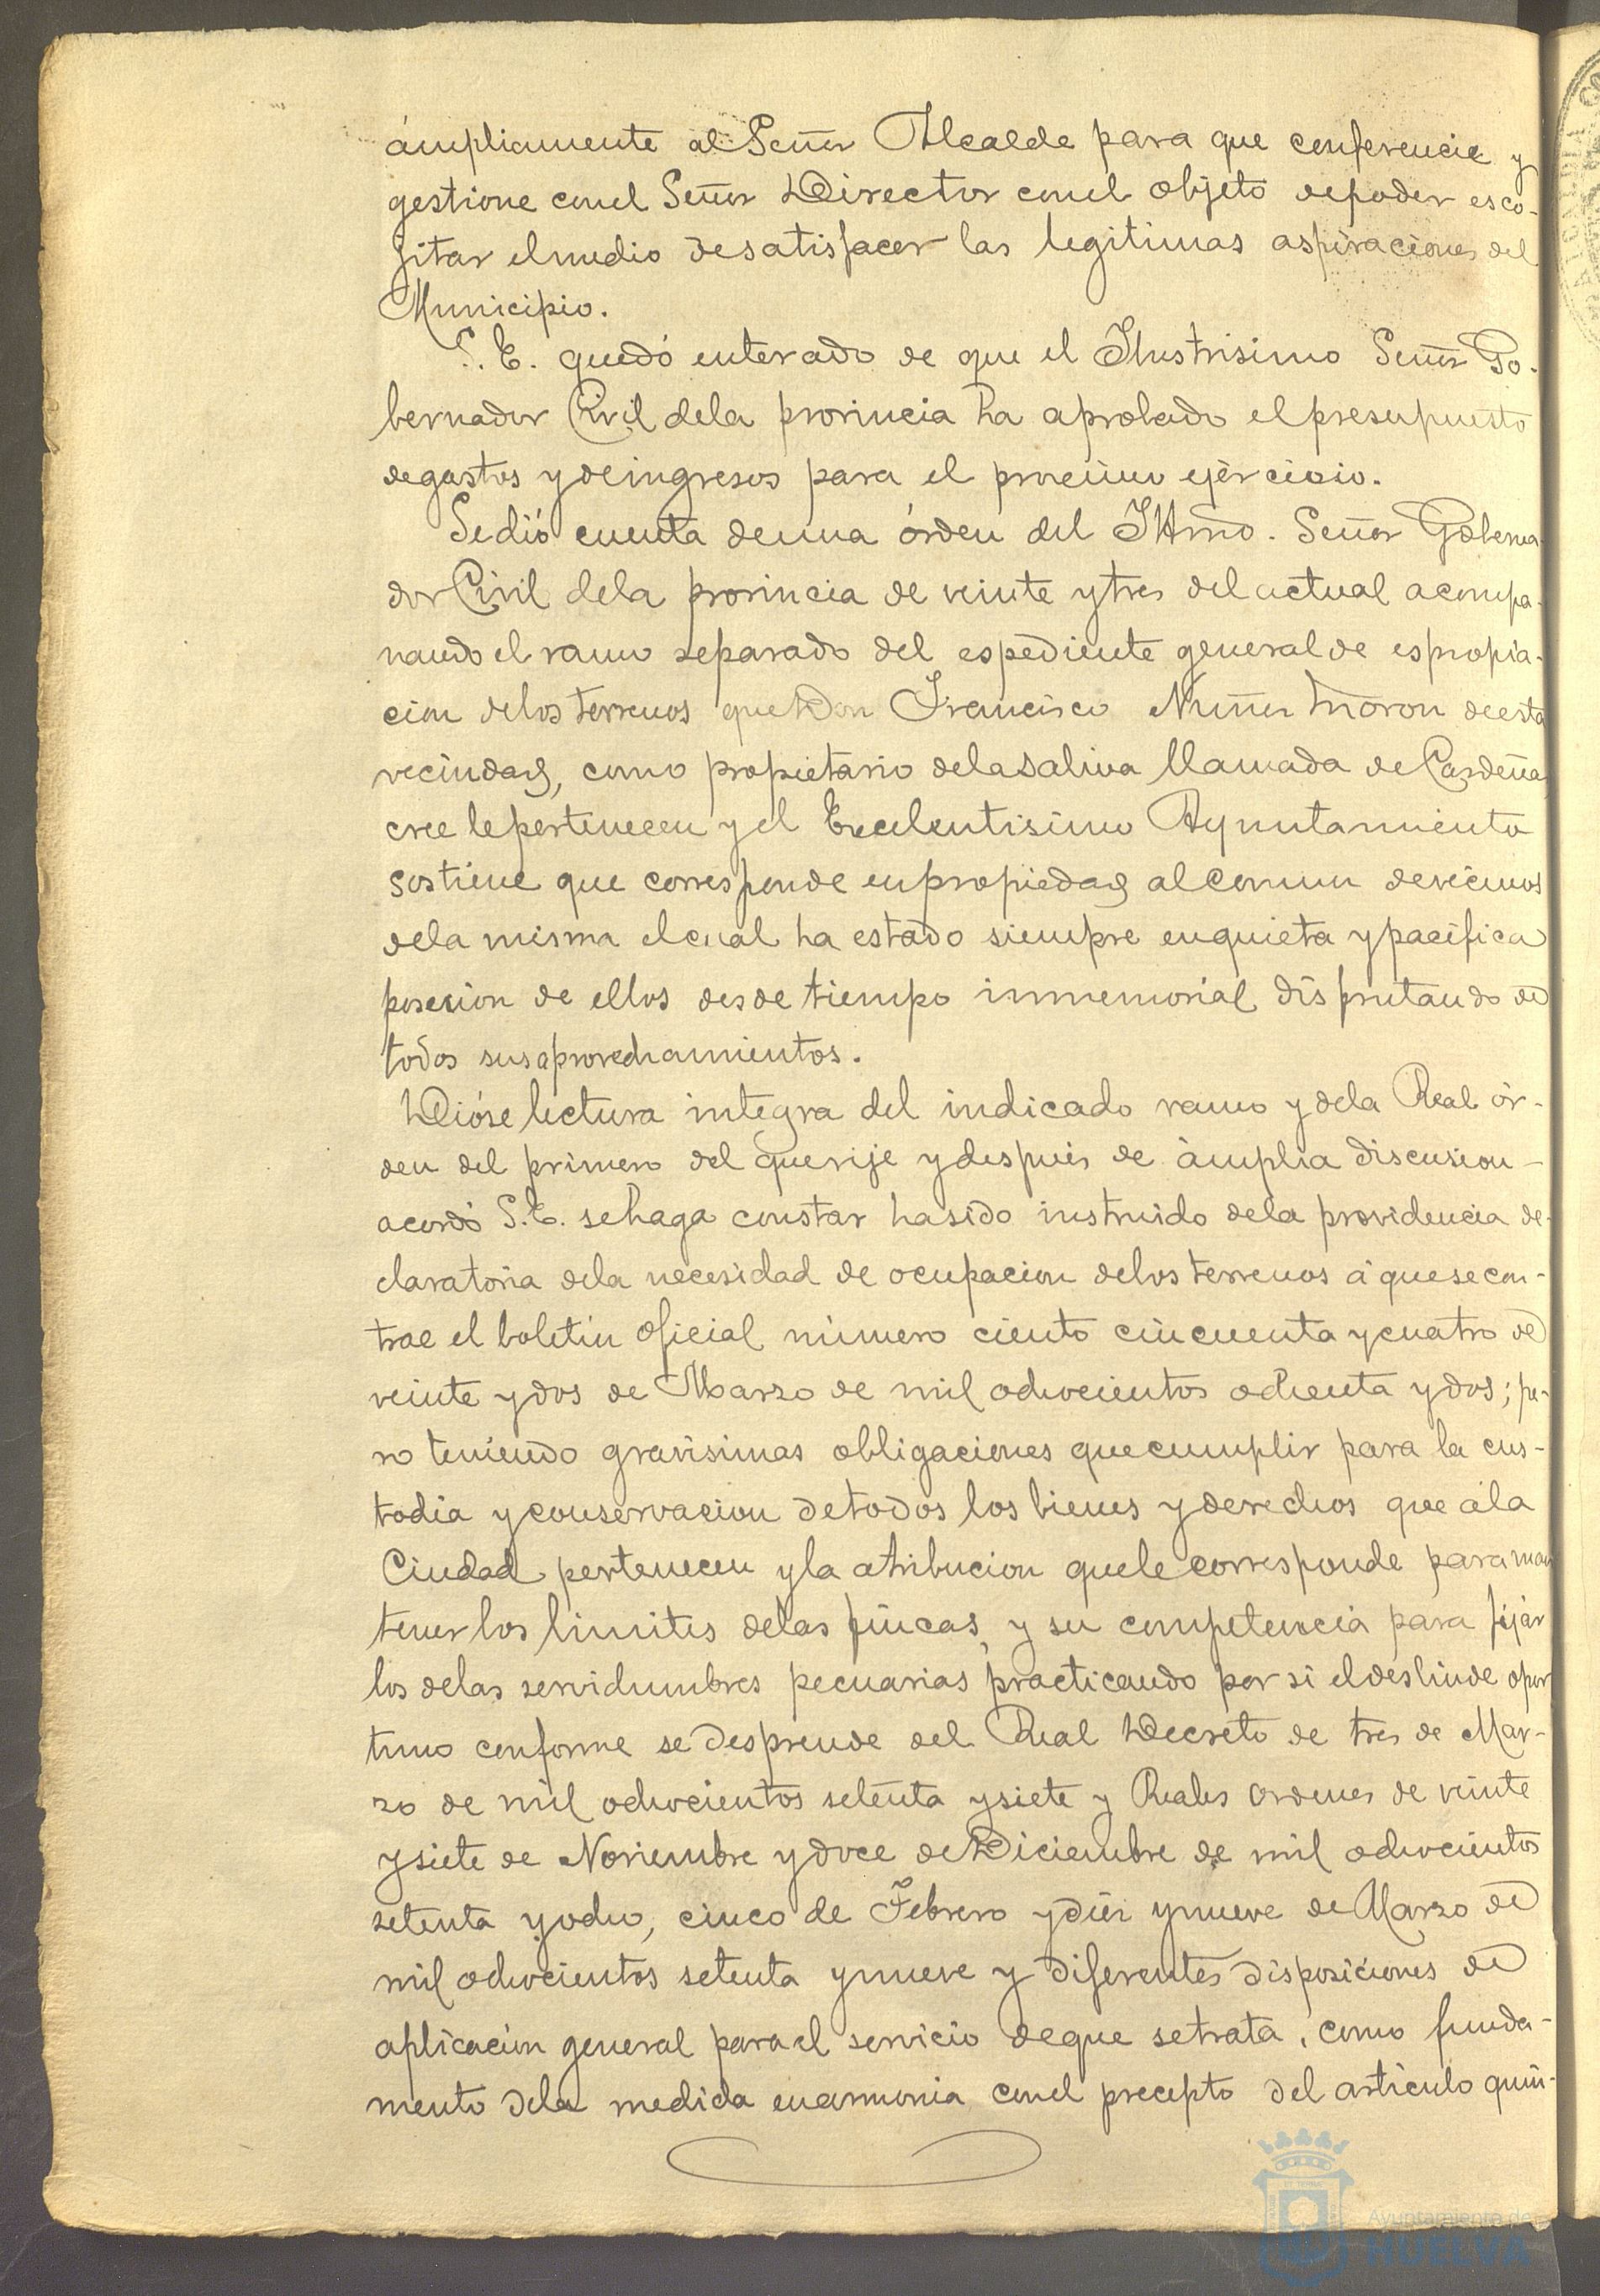 ámpliamente al Señor Alcalde para que conferencie y
gestione conel Señor Director conel objeto depoder esco-
jitar elmedio desatisfacer las legitimas aspiraciones del
Municipio.
S. E. quedó enterado de que el Ilustrisimo Señor Go-
bernador Civil dela provincia ha aprobado el presupuesto
degastos y deingresos para el procsimo ejercicio.
Sedió cuenta deuna órden del Illmo. Señor Goberna-
dor Civil dela provincia de veinte ytres del actual acompa-
nando el ramo separado del espediente general de espropia-
cion delos terrenos que Don Francisco Nuñez Moron deesta
vecindad, como propietario dela salina llamada de Cardeña,
cree lepertenecen y el Excelentisimo Ayuntamiento
sostiene que corresponde enpropiedad alcomun devecinos
dela misma elcual ha estado siempre enquieta ypacífica
posesion de ellos desde tiempo inmemorial disfrutando de
todos susaprovechamientos.
Dióse lectura integra del indicado ramo y dela Real ór-
den del primero del querije ydespues de ámplia discusion
acordó S. E. sehaga constar hasido instruido dela providencia de-
claratoria dela necesidad de ocupacion delos terrenos á quesecon-
trae el boletin oficial número ciento cincuenta ycuatro de
veinte ydos de Marzo de mil ochocientos ochenta ydos; pe-
ro teniendo gravisimas obligaciones quecumplir para la cus-
todia yconservacion detodos los bienes yderechos que ála
Ciudad pertenecen yla atribucion quelecorresponde paraman
tener los limites delas fincas, y su competencia para fijar
los delas servidumbres pecuarias practicando por si eldeslinde opor
tuno conforme se desprende del Real Decreto de tres de Mar-
zo de mil ochocientos setenta ysiete y Reales ordenes de veinte
ysiete de Noviembre ydoce de Diciembre de mil ochocientos
setenta yocho, cinco de Febrero ydiez ynueve de Marzo de
mil ochocientos setenta ynueve y diferentes disposiciones de
aplicacion general para el servicio deque setrata, como funda-
mento dela medida enarmonia conel precepto del artículo quin-
Ayuntamiento de
HUELVA